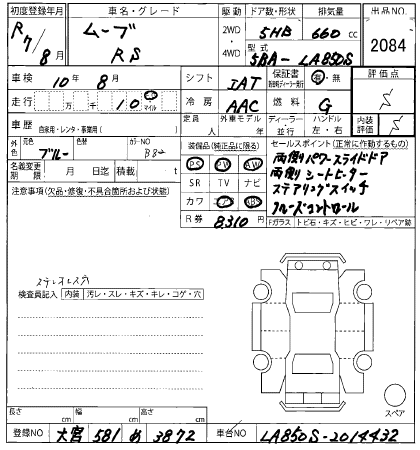 初度登録年月 車名・グレード 駆動 ドア数・形状 排気量 出品NO.
R7/8月 ムーブ RS 2WD・4WD 5HB 660cc 2084
型式 5BA-LA850S
車検 10年8月 シフト IAT 保証書 有・無 評価点
走行 万 千 10 マイル 冷房 AAC 燃料 G
車歴 自家用・レンタ・事業用( ) 定員 人 外車モデル 年 ディーラー・並行 ハンドル 左・右 内装評価
外色 元色 ブルー 色替 カラーNO B82
装備品(純正品に限る) セールスポイント(正常に作動するもの)
名義変更期限 月 日迄 積載 t PS PW AW 両側パワースライドドア
注意事項(欠品・修復・不具合箇所および状態) SR TV ナビ 両側シートヒーター
カワ ステアリングスイッチ
R券 8310円 クルーズコントロール
Fガラス トビ石・キズ・ヒビ・ワレ・リペア跡
検査員記入 内装 汚レ・スレ・キズ・キレ・コゲ・穴
スペア
長さ cm 幅 cm 高さ cm
登録NO 大宮 581 め 3872 車台NO LA850S-2014432